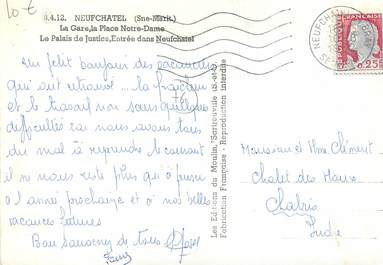 10 €
M.4.12. NEUFCHATEL (Sne-Marit.)
La Gare, la Place Notre-Dame
Le Palais de Justice, Entrée dans Neufchatel
Un petit bonjour des vacanciers
qui ont retrouvé la fraîcheur
et le travail non sans quelques
difficultés car nous avons tous
du mal à reprendre le courant
il ne nous reste plus qu'à penser
à l'année prochaine et à nos belles
vacances futures
Bon Souvenir de tous
Les Editions du Moulin, Sartrouville (S.-et-O.)
Fabrication Française - Reproduction interdite
NEUFCHATEL
0.25
Monsieur et Mme Clément
Chalet des
Chabris
Indre